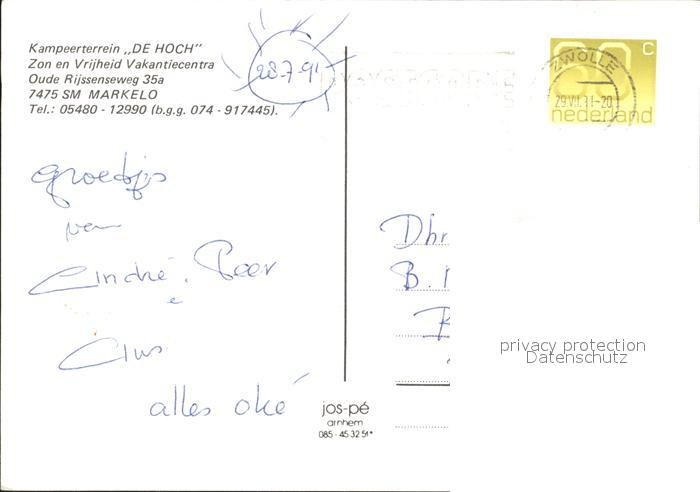 Kampeerterrein „DE HOCH"
Zon en Vrijheid Vakantiecentra
Oude Rijssenseweg 35a
7475 SM MARKELO
Tel.: 05480 - 12990 (b.g.g. 074 - 917445).
28.7.91
60 c
nederland
ZWOLLE
29.VII.91-20
groetjes
van
André. Peer
e
alles oké
Dhr
B.
privacy protection
Datenschutz
jos-pé
arnhem
085 - 45 32 51*